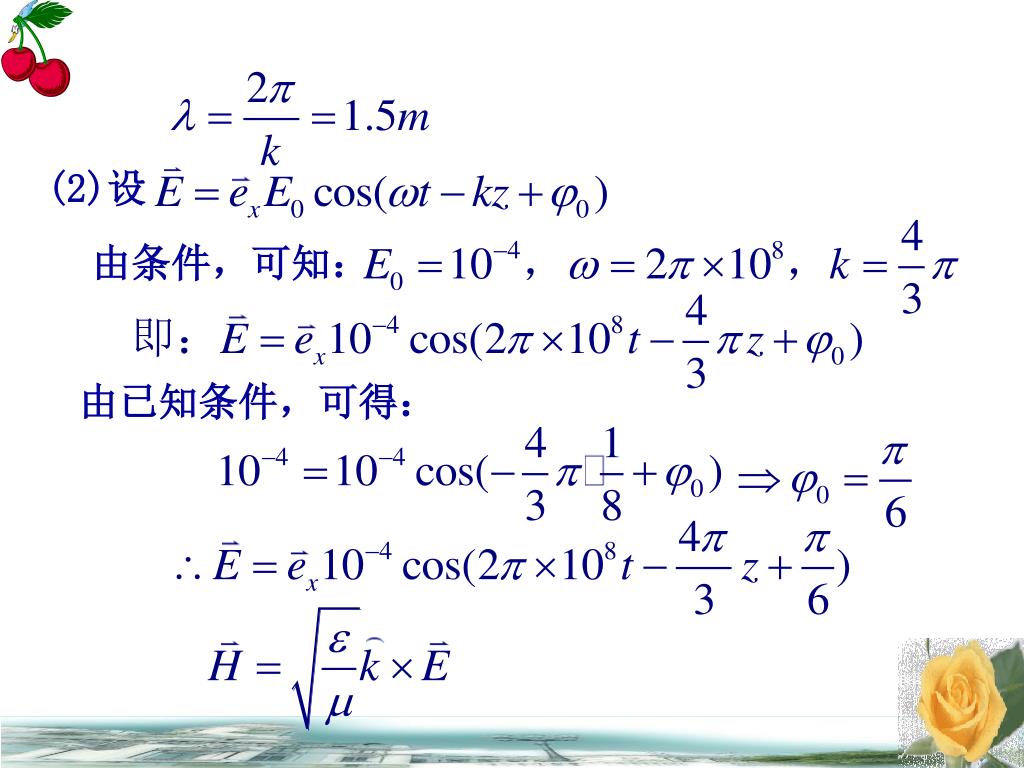 λ = 2π/k = 1.5m
(2)设 E⃗ = e⃗ₓE₀ cos(ωt − kz + φ₀)
由条件，可知：E₀ = 10⁻⁴， ω = 2π × 10⁸，k = 4/3 π
即：E⃗ = e⃗ₓ10⁻⁴ cos(2π × 10⁸ t − 4/3 π z + φ₀)
由已知条件，可得：
10⁻⁴ = 10⁻⁴ cos(− 4/3 π□1/8 + φ₀) ⇒ φ₀ = π/6
∴ E⃗ = e⃗ₓ10⁻⁴ cos(2π × 10⁸ t − 4π/3 z + π/6)
H⃗ = √(ε/μ) k̂ × E⃗